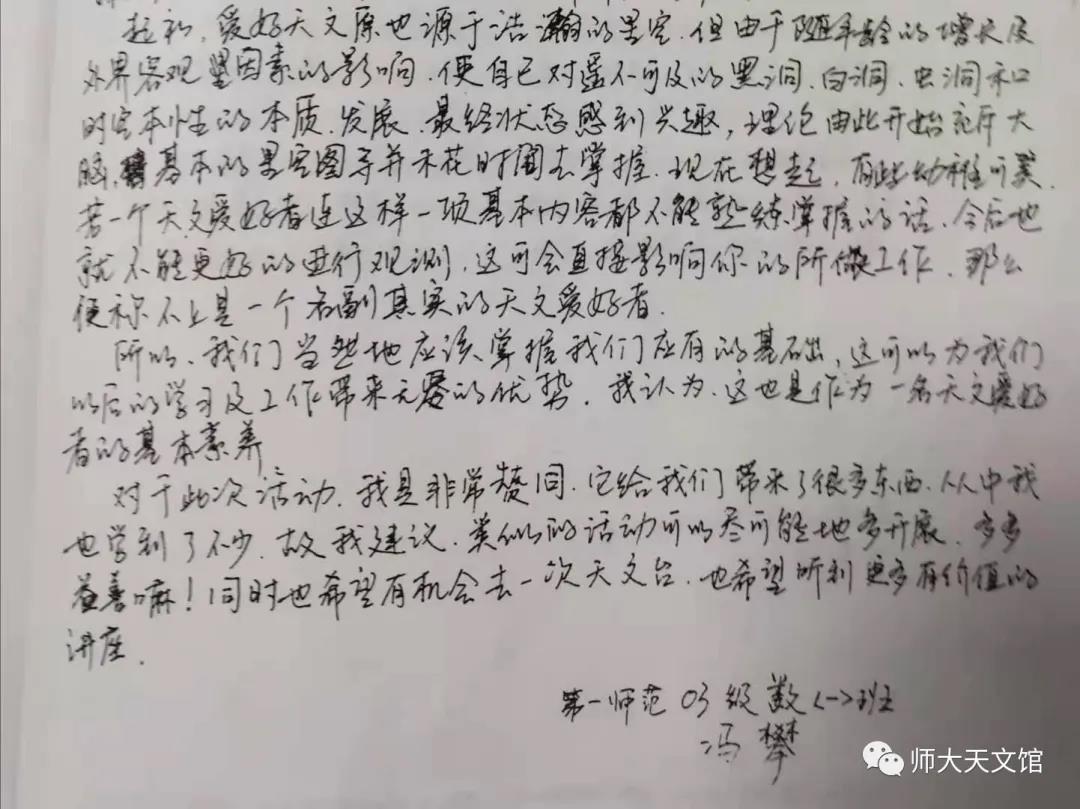 起初,爱好天文原也源于浩瀚的星空.但由于随年龄的增长及
外界客观因素的影响.便自己对遥不可及的黑洞.白洞、虫洞和
时空本性的本质.发展、最终状态感到兴趣,理论由此开始充斥大
脑,基本的星空图等并未花时间去掌握.现在想起,有些幼稚可笑.
若一个天文爱好者连这样一项基本内容都不能熟练掌握的话.今后也
就不能更好的进行观测.这可会直接影响你的所做工作.那么
便称不上是一个名副其实的天文爱好者.
所以、我们当然地应该掌握我们应有的基础,这可以为我们
以后的学习及工作带来无尽的优势.我认为.这也是作为一名天文爱好
者的基本素养
对于此次活动.我是非常赞同.它给我们带来了很多东西.从中我
也学到了不少.故我建议.类似的活动可以尽可能地多开展.多多
益善嘛!同时也希望有机会去一次天文台.也希望听到更多有价值的
讲座.
第一师范03级数<一>班
冯攀
师大天文馆